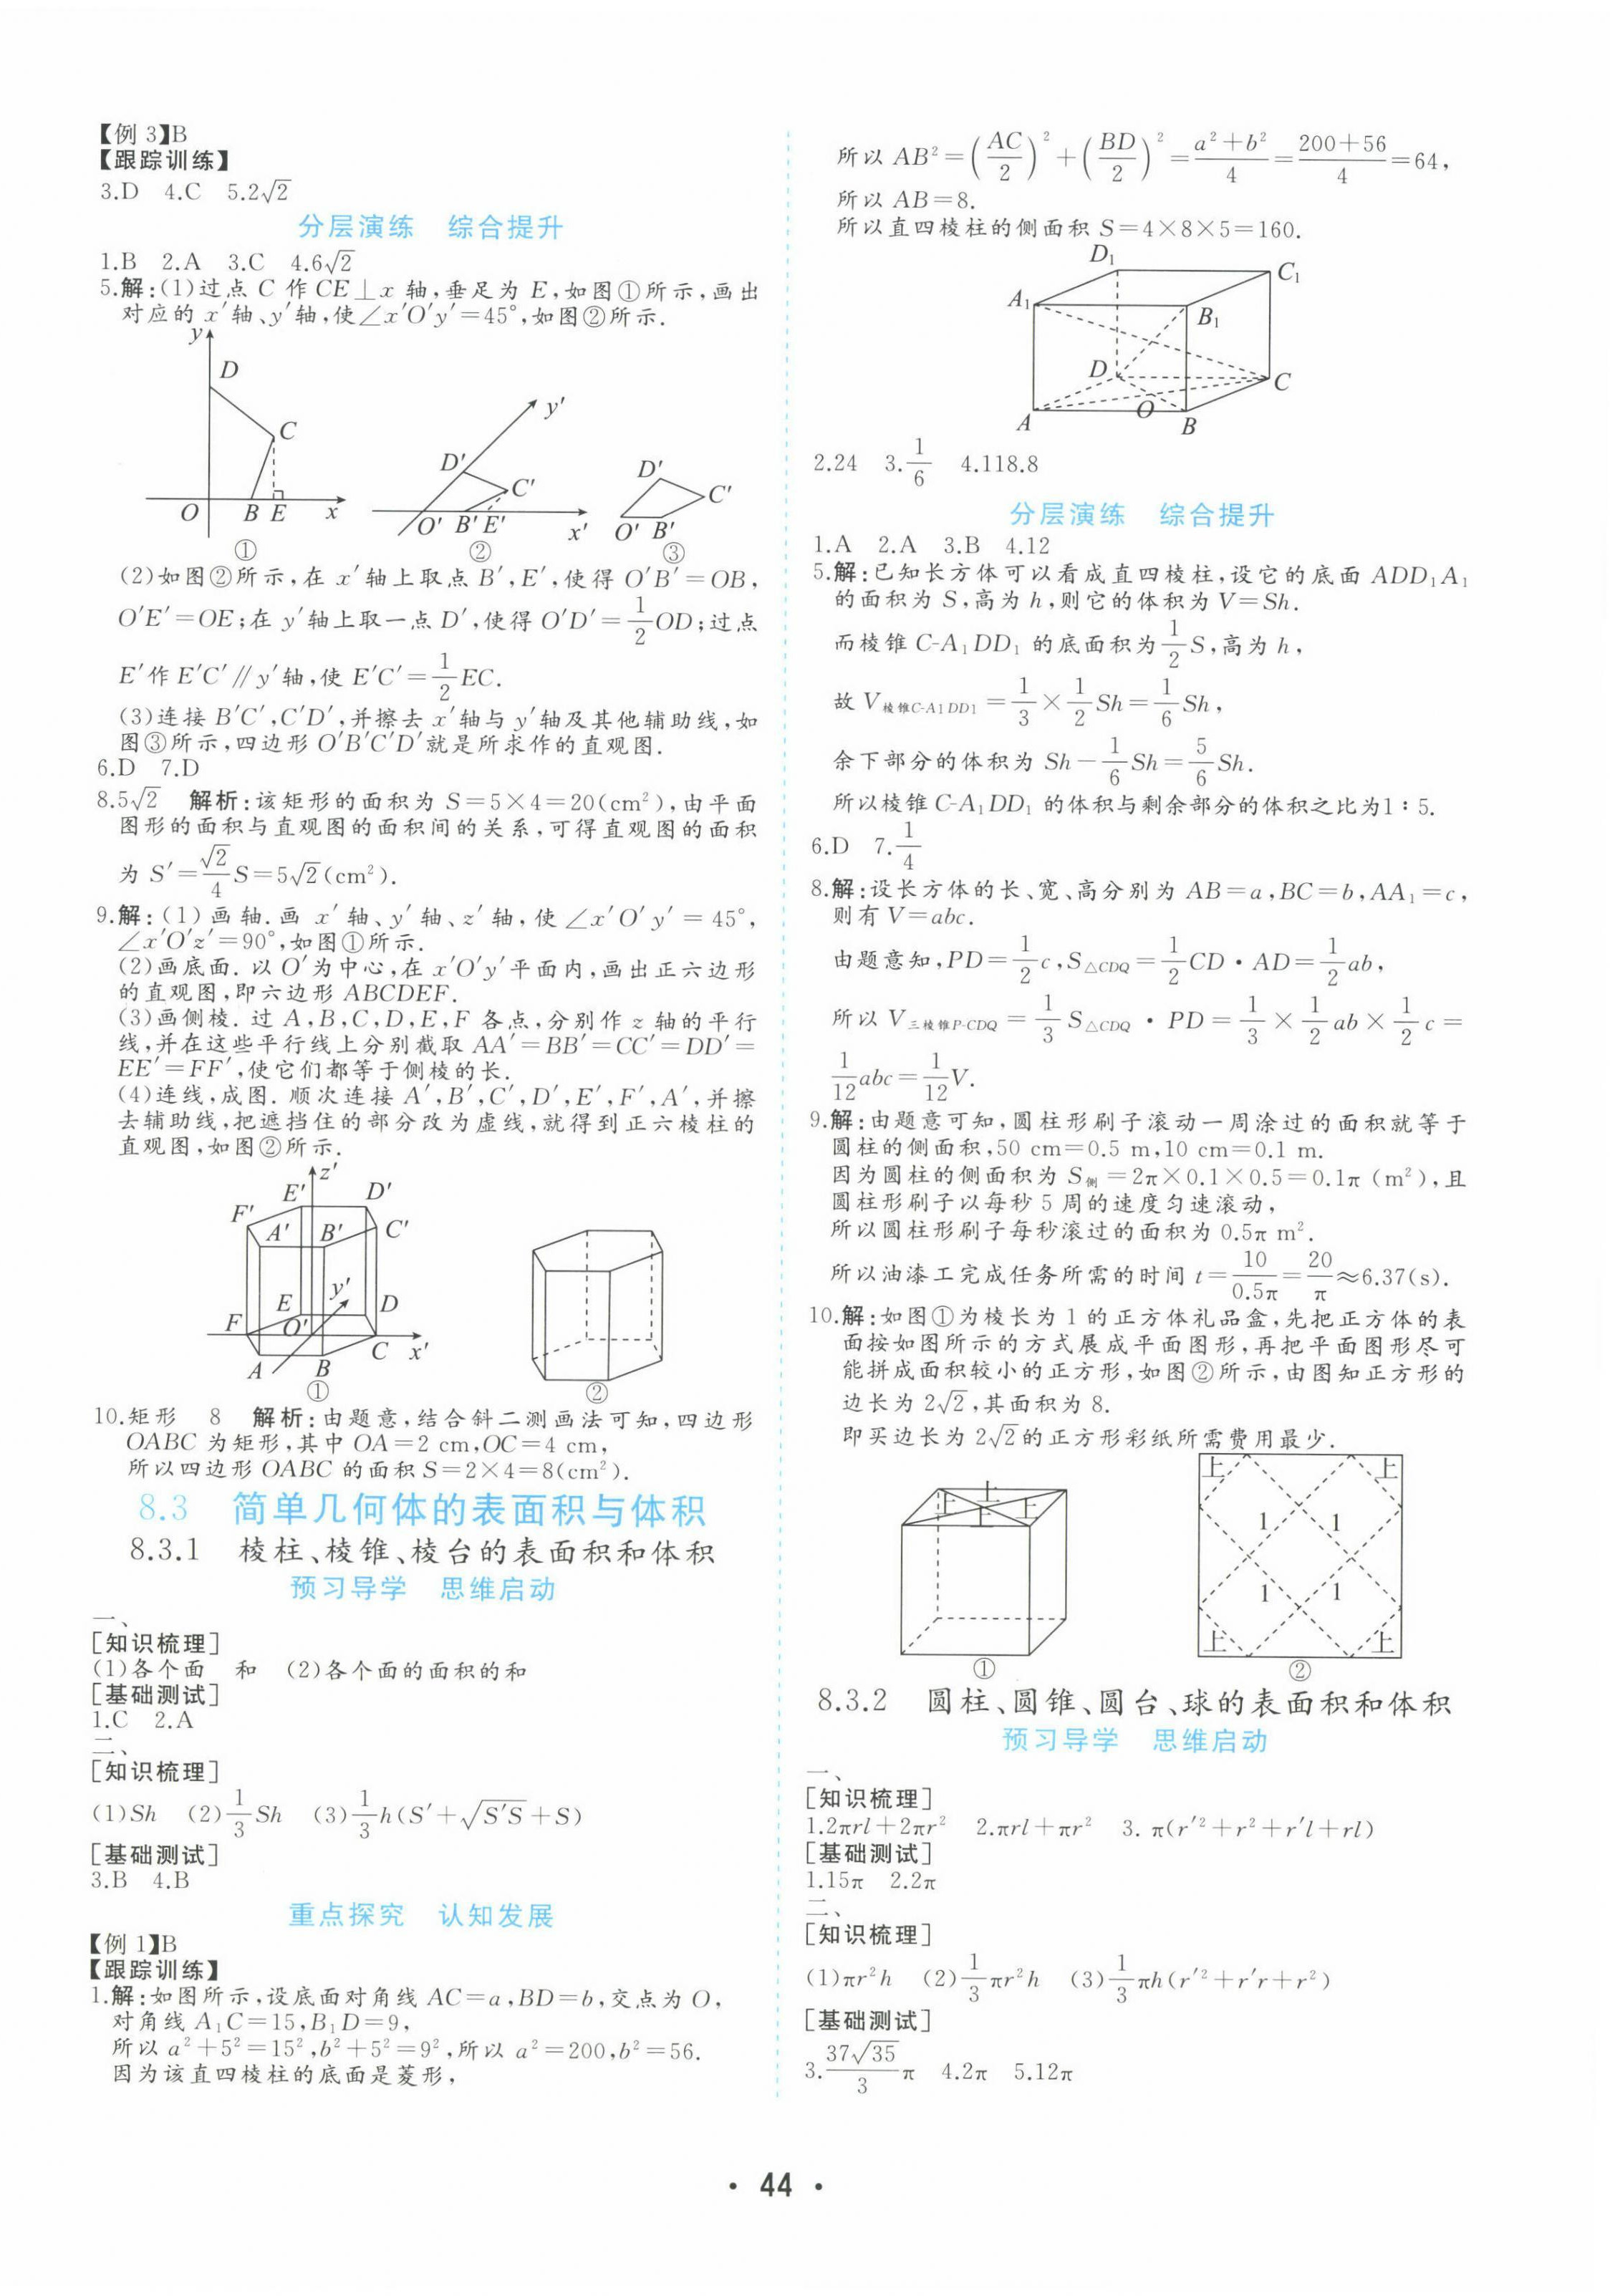 【例 3】B
【跟踪训练】
3.D　4.C　5.2√2
分层演练　综合提升
1.B　2.A　3.C　4.6√2
5.解:(1)过点 C 作 CE⊥x 轴,垂足为 E,如图①所示,画出
对应的 x′轴、y′轴,使∠x′O′y′=45°,如图②所示.
y
D
C
O B E x
①
y′
D′
C′
O′ B′ E′ x′
②
D′
C′
O′ B′
③
(2)如图②所示,在 x′轴上取点 B′,E′,使得 O′B′=OB,
O′E′=OE;在 y′轴上取一点 D′,使得 O′D′=1/2 OD;过点
E′作 E′C′∥y′轴,使 E′C′=1/2 EC.
(3)连接 B′C′,C′D′,并擦去 x′轴与 y′轴及其他辅助线,如
图③所示,四边形 O′B′C′D′就是所求作的直观图.
6.D　7.D
8.5√2　解析:该矩形的面积为 S=5×4=20(cm²),由平面
图形的面积与直观图的面积间的关系,可得直观图的面积
为 S′=√2/4 S=5√2(cm²).
9.解:(1)画轴.画 x′轴、y′轴、z′轴,使∠x′O′y′=45°,
∠x′O′z′=90°,如图①所示.
(2)画底面.以 O′为中心,在 x′O′y′平面内,画出正六边形
的直观图,即六边形 ABCDEF.
(3)画侧棱.过 A,B,C,D,E,F 各点,分别作 z 轴的平行
线,并在这些平行线上分别截取 AA′=BB′=CC′=DD′=
EE′=FF′,使它们都等于侧棱的长.
(4)连线,成图.顺次连接 A′,B′,C′,D′,E′,F′,A′,并擦
去辅助线,把遮挡住的部分改为虚线,就得到正六棱柱的
直观图,如图②所示.
z′
E′ D′
F′ A′ B′ C′
y′
E D
F O′
A B C x′
①
②
10.矩形　8　解析:由题意,结合斜二测画法可知,四边形
OABC 为矩形,其中 OA=2 cm,OC=4 cm,
所以四边形 OABC 的面积 S=2×4=8(cm²).
8.3　简单几何体的表面积与体积
8.3.1　棱柱、棱锥、棱台的表面积和体积
预习导学　思维启动
一、
[知识梳理]
(1)各个面　和　(2)各个面的面积的和
[基础测试]
1.C　2.A
二、
[知识梳理]
(1)Sh　(2)1/3 Sh　(3)1/3 h(S′+√(S′S)+S)
[基础测试]
3.B　4.B
重点探究　认知发展
【例 1】B
【跟踪训练】
1.解:如图所示,设底面对角线 AC=a,BD=b,交点为 O,
对角线 A₁C=15,B₁D=9,
所以 a²+5²=15²,b²+5²=9²,所以 a²=200,b²=56.
因为该直四棱柱的底面是菱形,
所以 AB²=(AC/2)²+(BD/2)²=(a²+b²)/4=(200+56)/4=64,
所以 AB=8.
所以直四棱柱的侧面积 S=4×8×5=160.
D₁
C₁
A₁
B₁
D
C
O
A B
2.24　3.1/6　4.118.8
分层演练　综合提升
1.A　2.A　3.B　4.12
5.解:已知长方体可以看成直四棱柱,设它的底面 ADD₁A₁
的面积为 S,高为 h,则它的体积为 V=Sh.
而棱锥 C-A₁DD₁ 的底面积为1/2 S,高为 h,
故 V棱锥C-A₁DD₁=1/3×1/2 Sh=1/6 Sh,
余下部分的体积为 Sh-1/6 Sh=5/6 Sh.
所以棱锥 C-A₁DD₁ 的体积与剩余部分的体积之比为1∶5.
6.D　7.1/4
8.解:设长方体的长、宽、高分别为 AB=a,BC=b,AA₁=c,
则有 V=abc.
由题意知,PD=1/2 c,S△CDQ=1/2 CD·AD=1/2 ab,
所以 V三棱锥P-CDQ=1/3 S△CDQ·PD=1/3×1/2 ab×1/2 c=
1/12 abc=1/12 V.
9.解:由题意可知,圆柱形刷子滚动一周涂过的面积就等于
圆柱的侧面积,50 cm=0.5 m,10 cm=0.1 m.
因为圆柱的侧面积为 S侧=2π×0.1×0.5=0.1π (m²),且
圆柱形刷子以每秒 5 周的速度匀速滚动,
所以圆柱形刷子每秒滚过的面积为 0.5π m².
所以油漆工完成任务所需的时间 t=10/0.5π=20/π≈6.37(s).
10.解:如图①为棱长为 1 的正方体礼品盒,先把正方体的表
面按如图所示的方式展成平面图形,再把平面图形尽可
能拼成面积较小的正方形,如图②所示,由图知正方形的
边长为 2√2,其面积为 8.
即买边长为 2√2的正方形彩纸所需费用最少.
上 上 上 上
①
上 上
1 1
1 1
上 上
②
8.3.2　圆柱、圆锥、圆台、球的表面积和体积
预习导学　思维启动
一、
[知识梳理]
1.2πrl+2πr²　2.πrl+πr²　3. π(r′²+r²+r′l+rl)
[基础测试]
1.15π　2.2π
二、
[知识梳理]
(1)πr²h　(2)1/3 πr²h　(3)1/3 πh(r′²+r′r+r²)
[基础测试]
3.37√35/3 π　4.2π　5.12π
· 44 ·